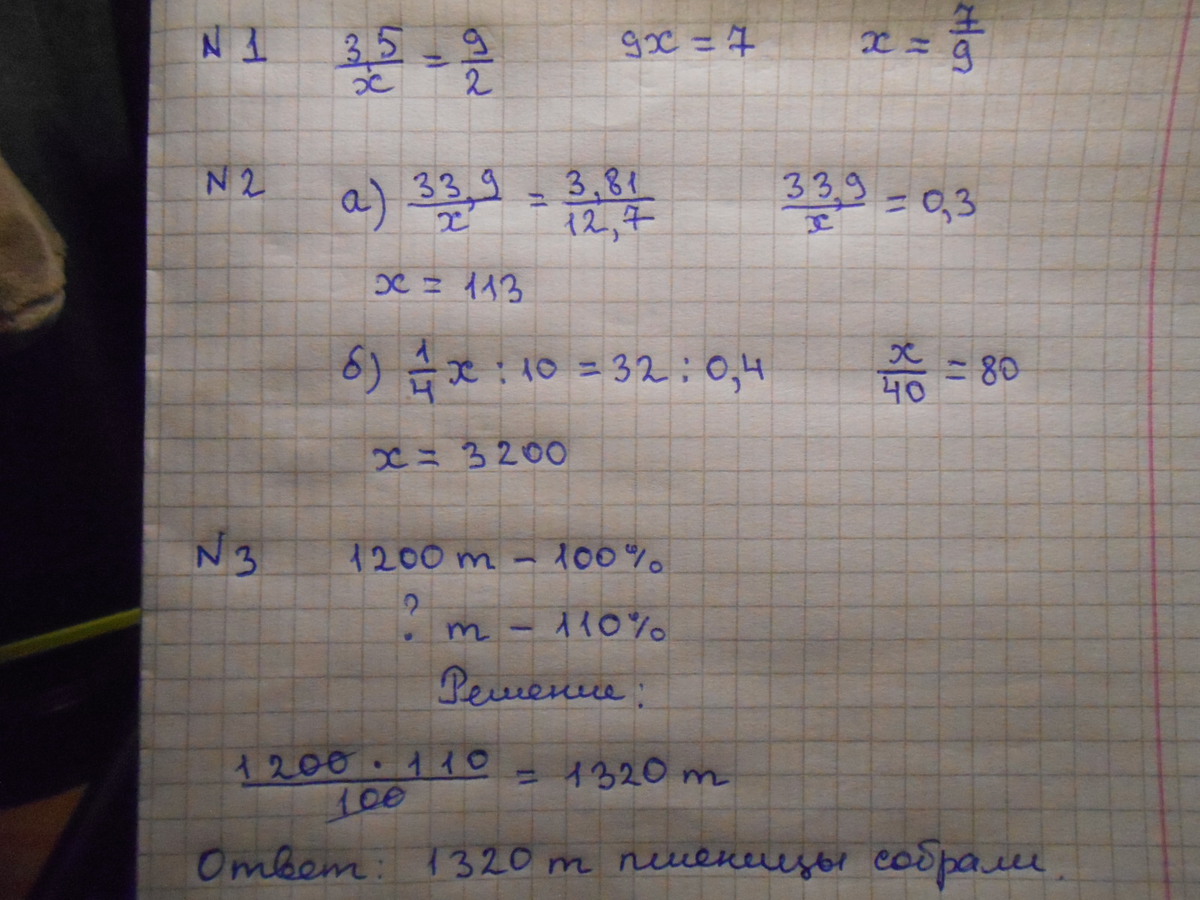 N 1 3,5/x = 9/2 9x = 7 x = 7/9
N 2 а) 33,9/x = 3,81/12,7 33,9/x = 0,3
x = 113
б) 1/4 x : 10 = 32 : 0,4 x/40 = 80
x = 3200
N 3 1200 т – 100%
? т – 110%
Решение:
1200 · 110/100 = 1320 т
Ответ: 1320 т пшеницы собрали.